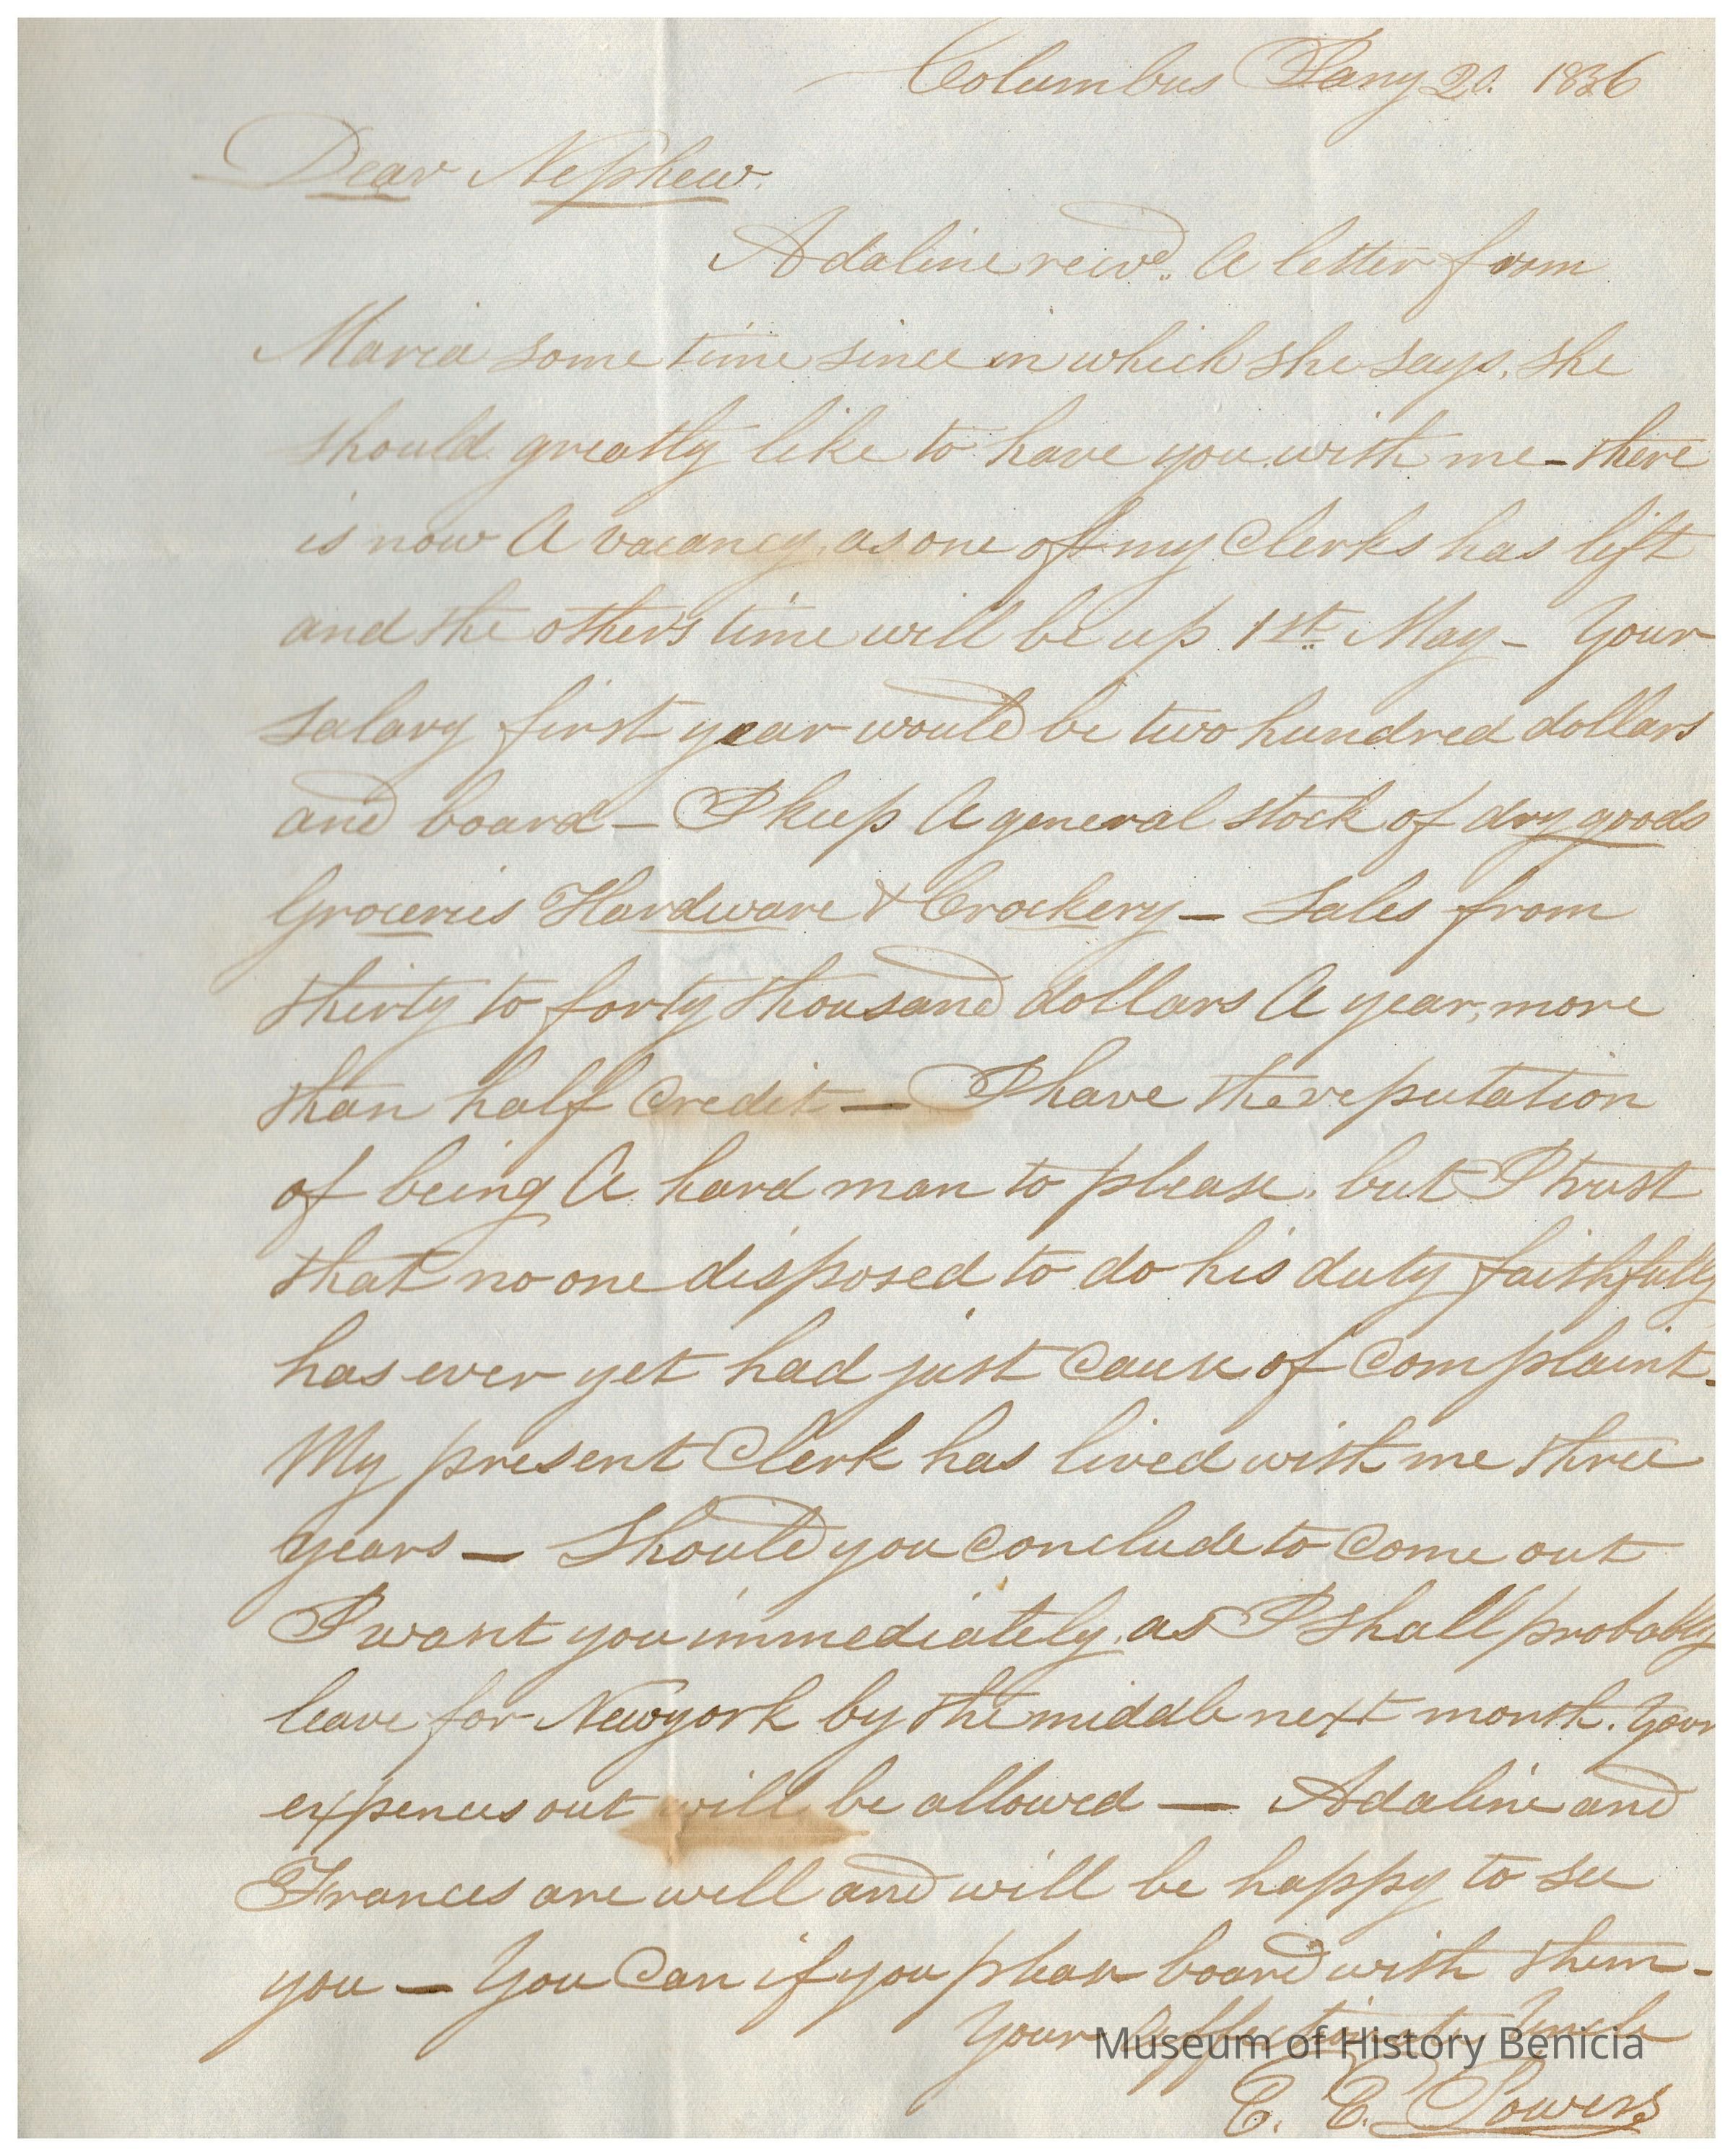 Columbus Jany 20. 1836
Dear Nephew.
Adaline recvd. A letter from
Maria some time since in which she says, she
should greatly like to have you with me - there
is now A vacancy, as one of my Clerks has left
and the others time will be up 1st. May - Your
salary first year would be two hundred dollars
and board - I keep A general stock of dry goods
Groceries Hardware & Crockery - Sales from
thirty to forty thousand dollars A year, more
than half Credit - I have the reputation
of being A hard man to please, but I trust
that no one disposed to do his duty faithfully
has ever yet had just Cause of Complaint.
My present Clerk has lived with me three
years - Should you Conclude to Come out
I want you immediately, as I shall probably
leave for Newyork by the middle next month. Your
expences out will be allowed - Adaline and
Frances are well and will be happy to see
you - You Can if you please board with them -
Your affectionate Uncle
Museum of History Benicia